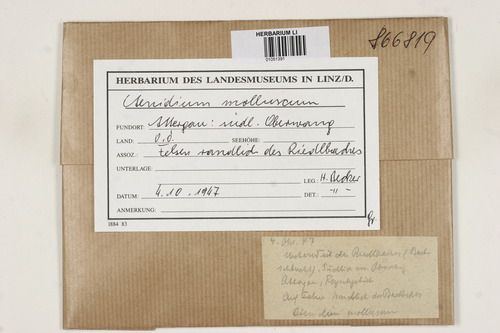 HERBARIUM LI
01001391
866819
HERBARIUM DES LANDESMUSEUMS IN LINZ/D.
Ctenidium molluscum
FUNDORT: Attergau: südl. Oberwang
LAND: O.Ö. SEEHÖHE:
ASSOZ.: Felsen randlich des Riedlbaches
UNTERLAGE:
LEG.: H. Becker
DATUM: 4.10.1947 DET.: -"-
ANMERKUNG:
1884 83
Gr.
4. Okt. 47
Südlich von Oberwang
Attergau,
Auf Felsen randlich des Baches
Ctenidium molluscum